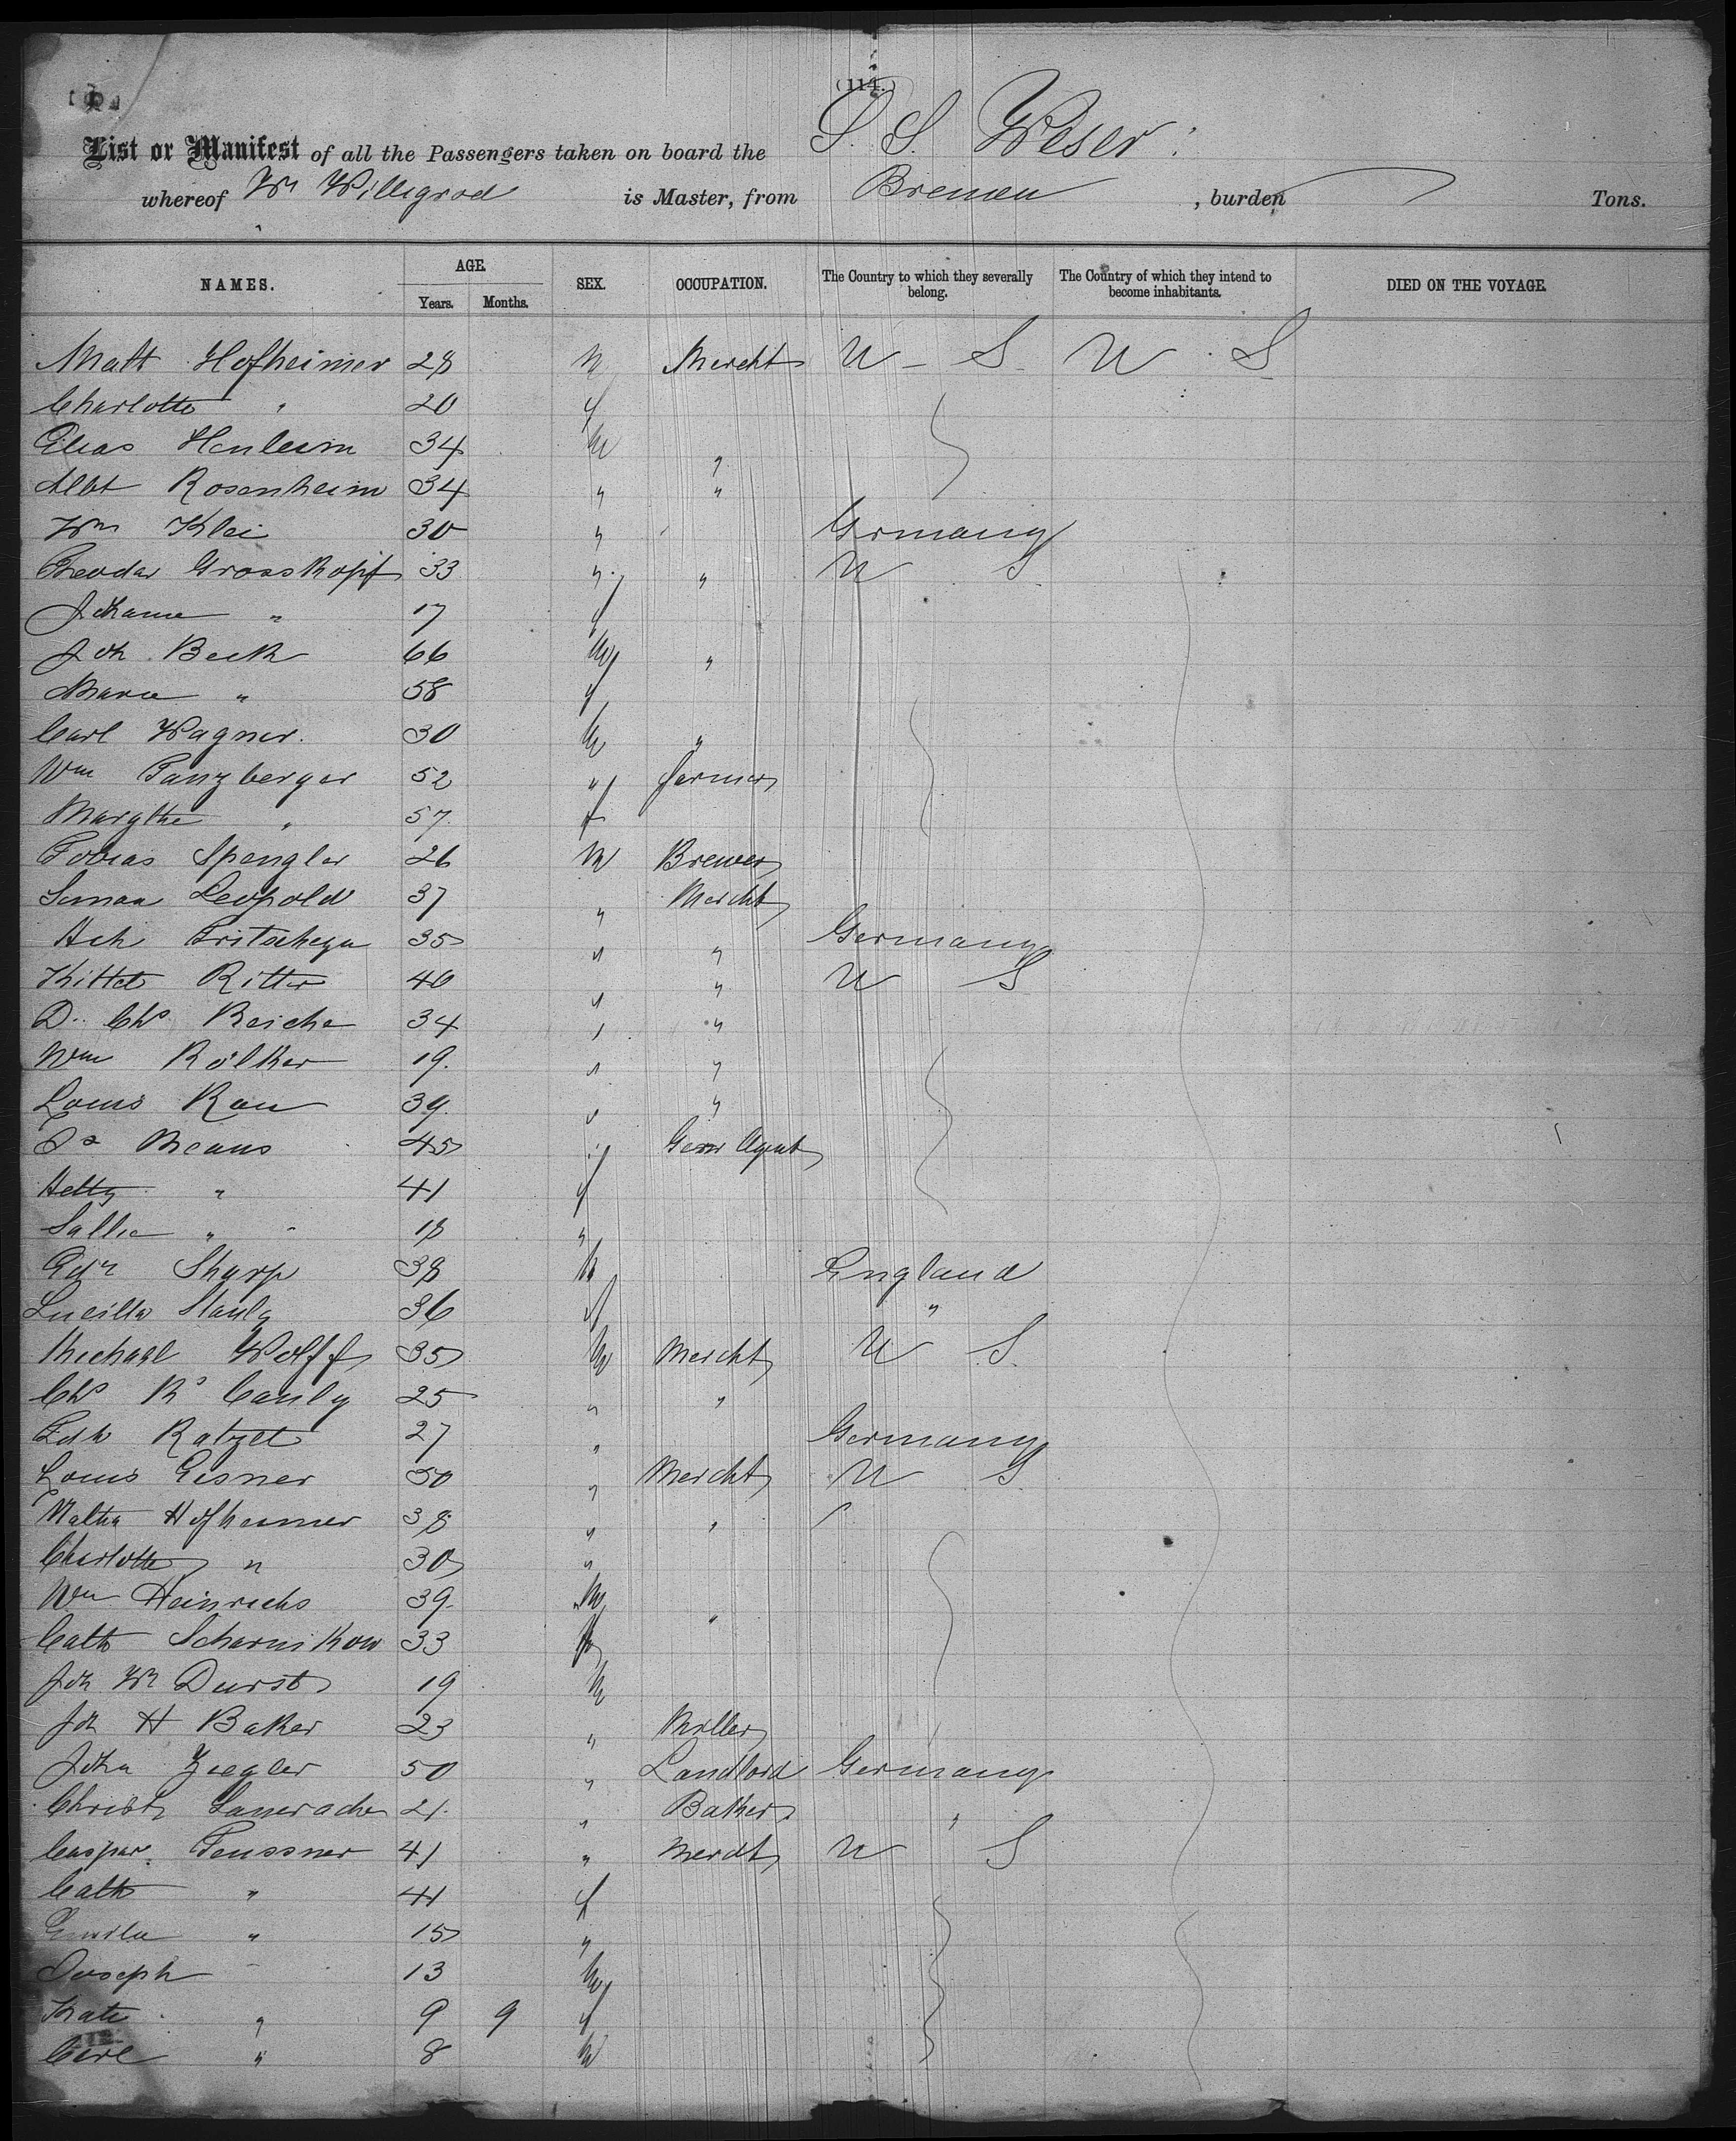 (114.)
List or Manifest of all the Passengers taken on board the S. S. Weser
whereof Wm Willigerod is Master, from Bremen, burden Tons.
NAMES. AGE. SEX. OCCUPATION. The Country to which they severally belong. The Country of which they intend to become inhabitants. DIED ON THE VOYAGE.
Years. Months.
Matt Hofheimer 28 m Mercht U - S U . S
Charlotte " 20 f
Elias Henlein 34 m "
Albt Rosenheim 34 " "
Wm Klei 30 " Germany
Theodor Grosskopf 33 " " U S
Johanne " 17 f
Joh Beck 66 m "
Marie " 58 f
Carl Wagner 30 m "
Wm Tanzberger 52 " farmer
Margthe " 57 f
Tobias Spengler 26 m Brewer
Simon Leopold 37 " Mercht
Hch 35 " " Germany
Ritter 40 " " U S
D. Chs Reiche 34 " "
Wm Rölker 19 " "
Louis Rau 39 " "
Means 45 " Agent
Hetty " 41 f
Sallie " 18 "
Edr Sharp 38 m England
Lucilla Stanly 36 f "
Michael Wolff 35 m Mercht U S
Chs 25 " "
Fdk Ratzel 27 " Germany
Louis Eisner 30 " Mercht U S
Hofheimer 38 " "
Charlotte " 30 "
Wm Heinrichs 39 m "
Cath Scharnikow 33 f
Joh Wm Durst 19 m
Joh H Baker 23 " Miller
John Ziegler 50 " Landlord Germany
Christ 21 " Baker "
Caspar Teussner 41 " Mercht U S
Cath " 41 f
Emilie " 15 "
Joseph " 13 m
Kate " 9 9 f
Carl " 8 m